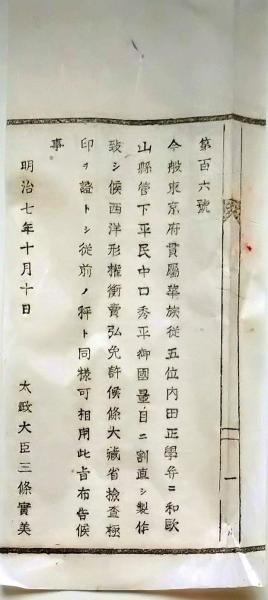 第百六號
今般東京府貫屬華族從五位内田正學幷ニ和歌
山縣管下平民中口秀平御國量目ニ割直シ製作
致シ候西洋形權衡賣弘免許候條大藏省檢査極
印ヲ證トシ從前ノ秤ト同樣可相用此旨布告候
事
明治七年十月十日
太政大臣三條實美
一